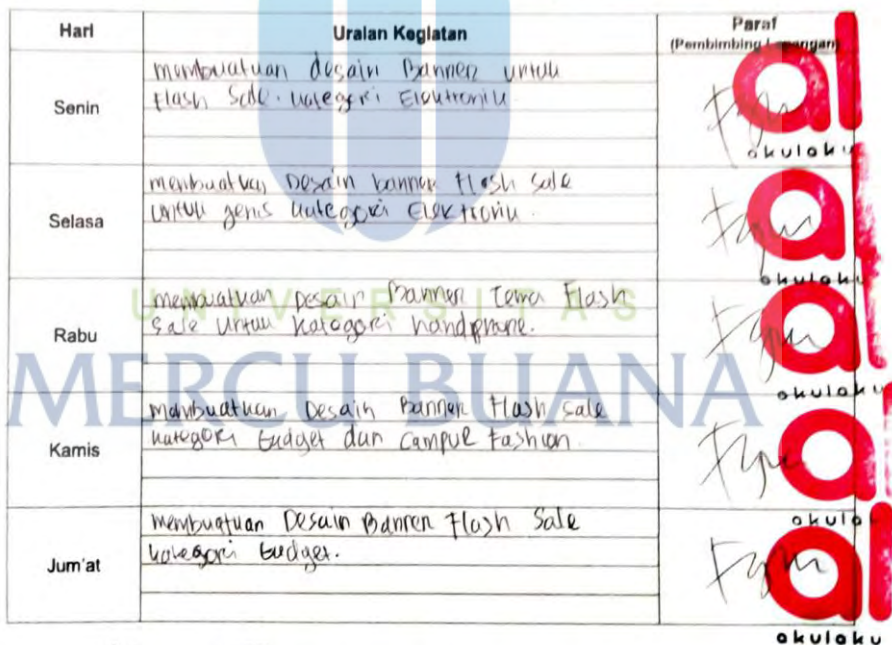 Hari Uraian Kegiatan Paraf
(Pembimbing Lapangan)
Senin
membuatuan desain Banner untuk
Flash Sale. kategori Elektronik.
akulaku
Selasa
membuatkan Desain banner Flash Sale
untuk jenis kategori Elektronik.
akulaku
UNIVERSITAS
Rabu
membuatkan Desain Banner Tema Flash
Sale untuk kategori handphone.
akulaku
MERCU BUANA
Kamis
membuatkan Desain Banner Flash Sale
kategori Gadget dan Campur Fashion.
akulaku
Jum'at
membuatkan Desain Banner Flash Sale
kategori Gadget.
akulaku